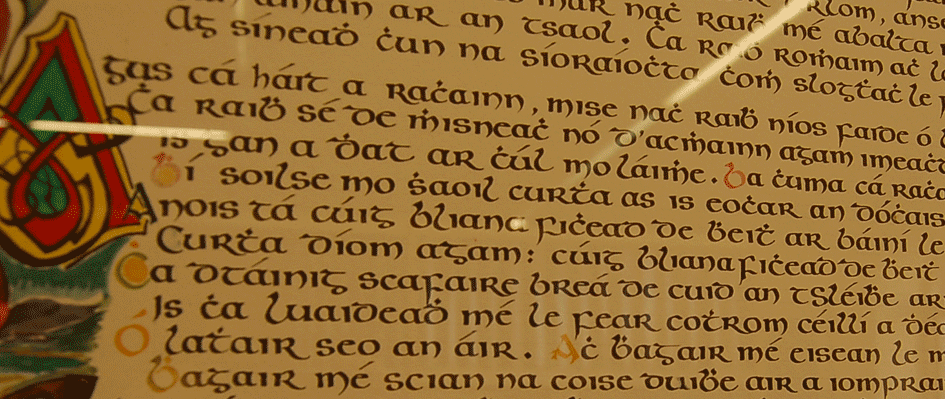 naċ raiḃ mé abalta
ar an tsaol. Ċa raiḃ roṁaim aċ
Ag síneaḋ ċun na síoraíoċta, ċoṁ slogṫaċ le
Agus cá háit a raċainn, mise naċ raiḃ níos faide ó
Ċa raiḃ sé de ṁisneaċ nó d'acṁainn agam
is gan a ḋat ar ċúl mo láiṁe. Ba ċuma cá
Ḃí soilse mo ṡaoil curṫa as is eoċar an dóċais
Anois tá cúig ḃliana fiċead de ḃeiṫ ar báiní le
Curṫa díom agam: cúig ḃliana fiċead de ḃeiṫ
Ċa dtáinig scafaire breá de cuid an tSléiḃe ar
Is ċa luaideaḋ mé le fear coṫrom céillí a
Ó laṫair seo an áir. Aċ ḃagair mé eisean le
Ḃagair mé scian na coise duiḃe air a